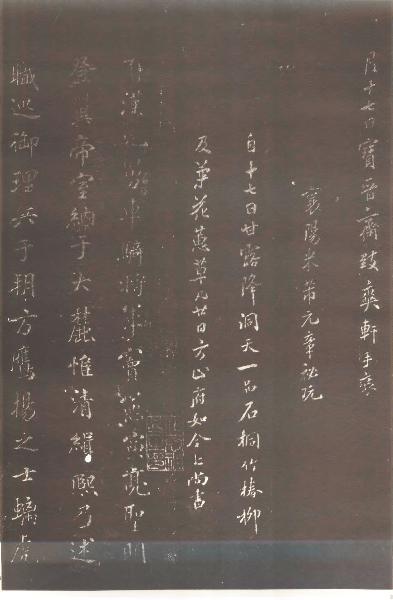 月十七日寶晉齋致爽軒手裝
襄陽米芾元章祕玩
自十七日甘露降洞天一品石桐竹椿柳
及葉花蕙草凡廿日方止府如今上尚書
漢元 車騎將軍竇 寅亮聖明
登 帝室納于大麓惟清緝熙乃述
職巡御理兵于朔方鷹揚之士螭虎